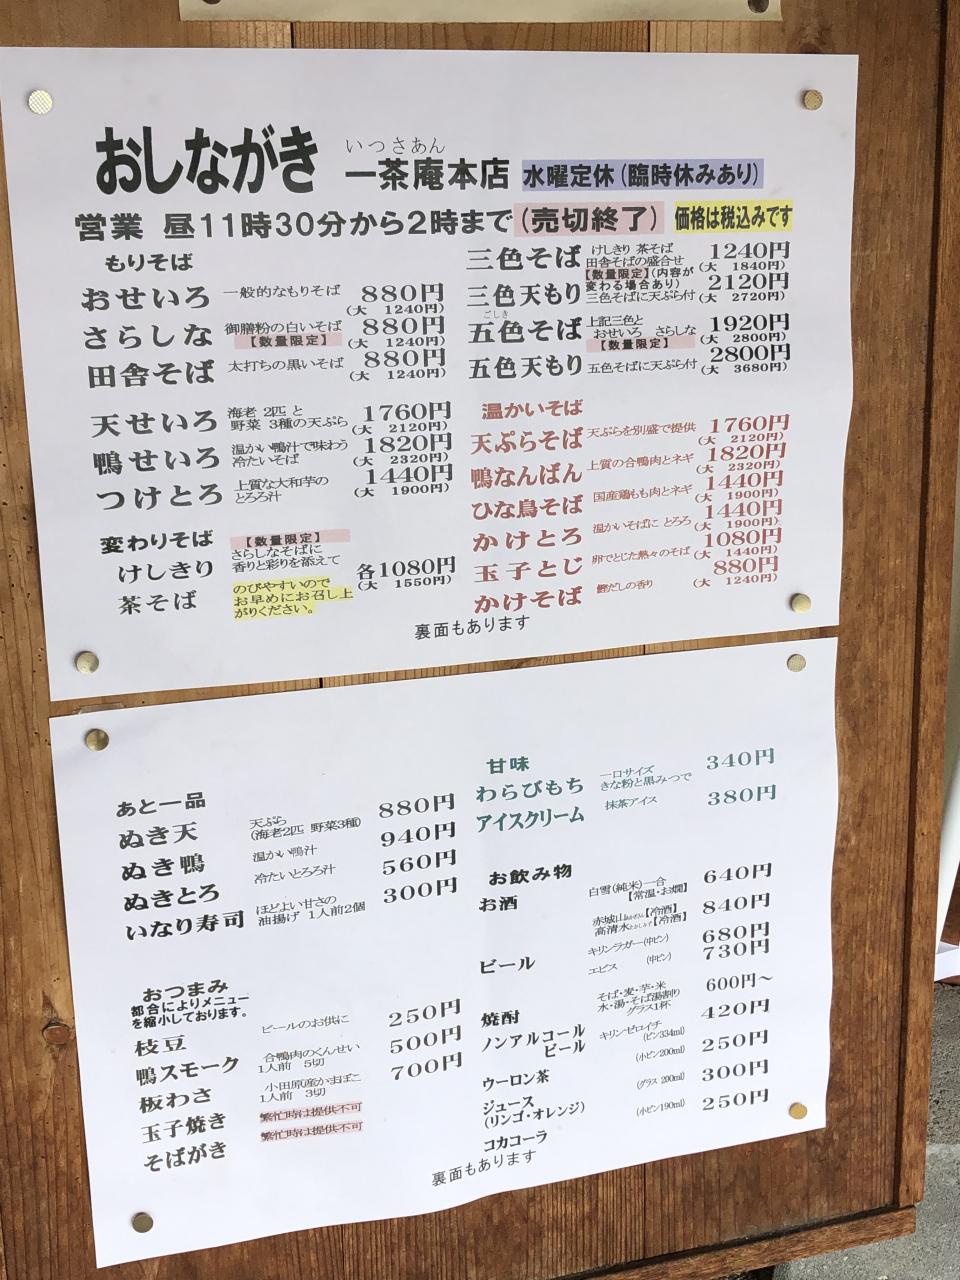 おしながき
いっさあん
一茶庵本店 水曜定休(臨時休みあり)
営業 昼11時30分から2時まで(売切終了) 価格は税込みです
もりそば
おせいろ 一般的なもりそば 880円
(大 1240円)
さらしな 御膳粉の白いそば 880円
【数量限定】 (大 1240円)
田舎そば 太打ちの黒いそば 880円
(大 1240円)
天せいろ 海老 2匹 と 1760円
野菜 3種の天ぷら (大 2120円)
鴨せいろ 温かい鴨汁で味わう 1820円
冷たいそば (大 2320円)
つけとろ 上質な大和芋の 1440円
とろろ汁 (大 1900円)
変わりそば 【数量限定】
さらしなそばに
けしきり 香りと彩りを添えて 各1080円
(大 1550円)
茶そば のびやすいので
お早めにお召し上
がりください。
三色そば けしきり 茶そば 1240円
田舎そばの盛合せ (大 1840円)
【数量限定】(内容が
変わる場合あり)
三色天もり 三色そばに天ぷら付 2120円
(大 2720円)
ごしき
五色そば 上記三色と 1920円
おせいろ さらしな (大 2800円)
【数量限定】
五色天もり 五色そばに天ぷら付 2800円
(大 3680円)
温かいそば
天ぷらそば 天ぷらを別盛で提供 1760円
(大 2120円)
鴨なんばん 上質の合鴨肉とネギ 1820円
(大 2320円)
ひな鳥そば 国産鶏もも肉とネギ 1440円
(大 1900円)
かけとろ 温かいそばに とろろ 1440円
(大 1900円)
玉子とじ 卵でとじた熱々のそば 1080円
(大 1440円)
かけそば 鰹だしの香り 880円
(大 1240円)
裏面もあります
あと一品
ぬき天 天ぷら 880円
(海老2匹 野菜3種)
ぬき鴨 温かい鴨汁 940円
ぬきとろ 冷たいとろろ汁 560円
いなり寿司 ほどよい甘さの 300円
油揚げ 1人前2個
おつまみ
都合によりメニュー
を縮小しております。
枝豆 ビールのお供に 250円
鴨スモーク 合鴨肉のくんせい 500円
1人前 5切
板わさ 小田原産かまぼこ 700円
1人前 3切
玉子焼き 繁忙時は提供不可
そばがき 繁忙時は提供不可
甘味
わらびもち 一口サイズ 340円
きな粉と黒みつで
アイスクリーム 抹茶アイス 380円
お飲み物
お酒 白雪(純米)一合 640円
【常温・お燗】
赤城山【冷酒】 840円
高清水【冷酒】
ビール キリンラガー(中ビン) 680円
エビス (中ビン) 730円
焼酎 そば・麦・芋・米 600円～
水・湯・そば湯割り
グラス1杯
ノンアルコール キリンゼロイチ 420円
ビール (ビン334ml)
ウーロン茶 (小ビン200ml) 250円
ジュース (グラス 200ml) 300円
(リンゴ・オレンジ)
コカコーラ (小ビン190ml) 250円
裏面もあります